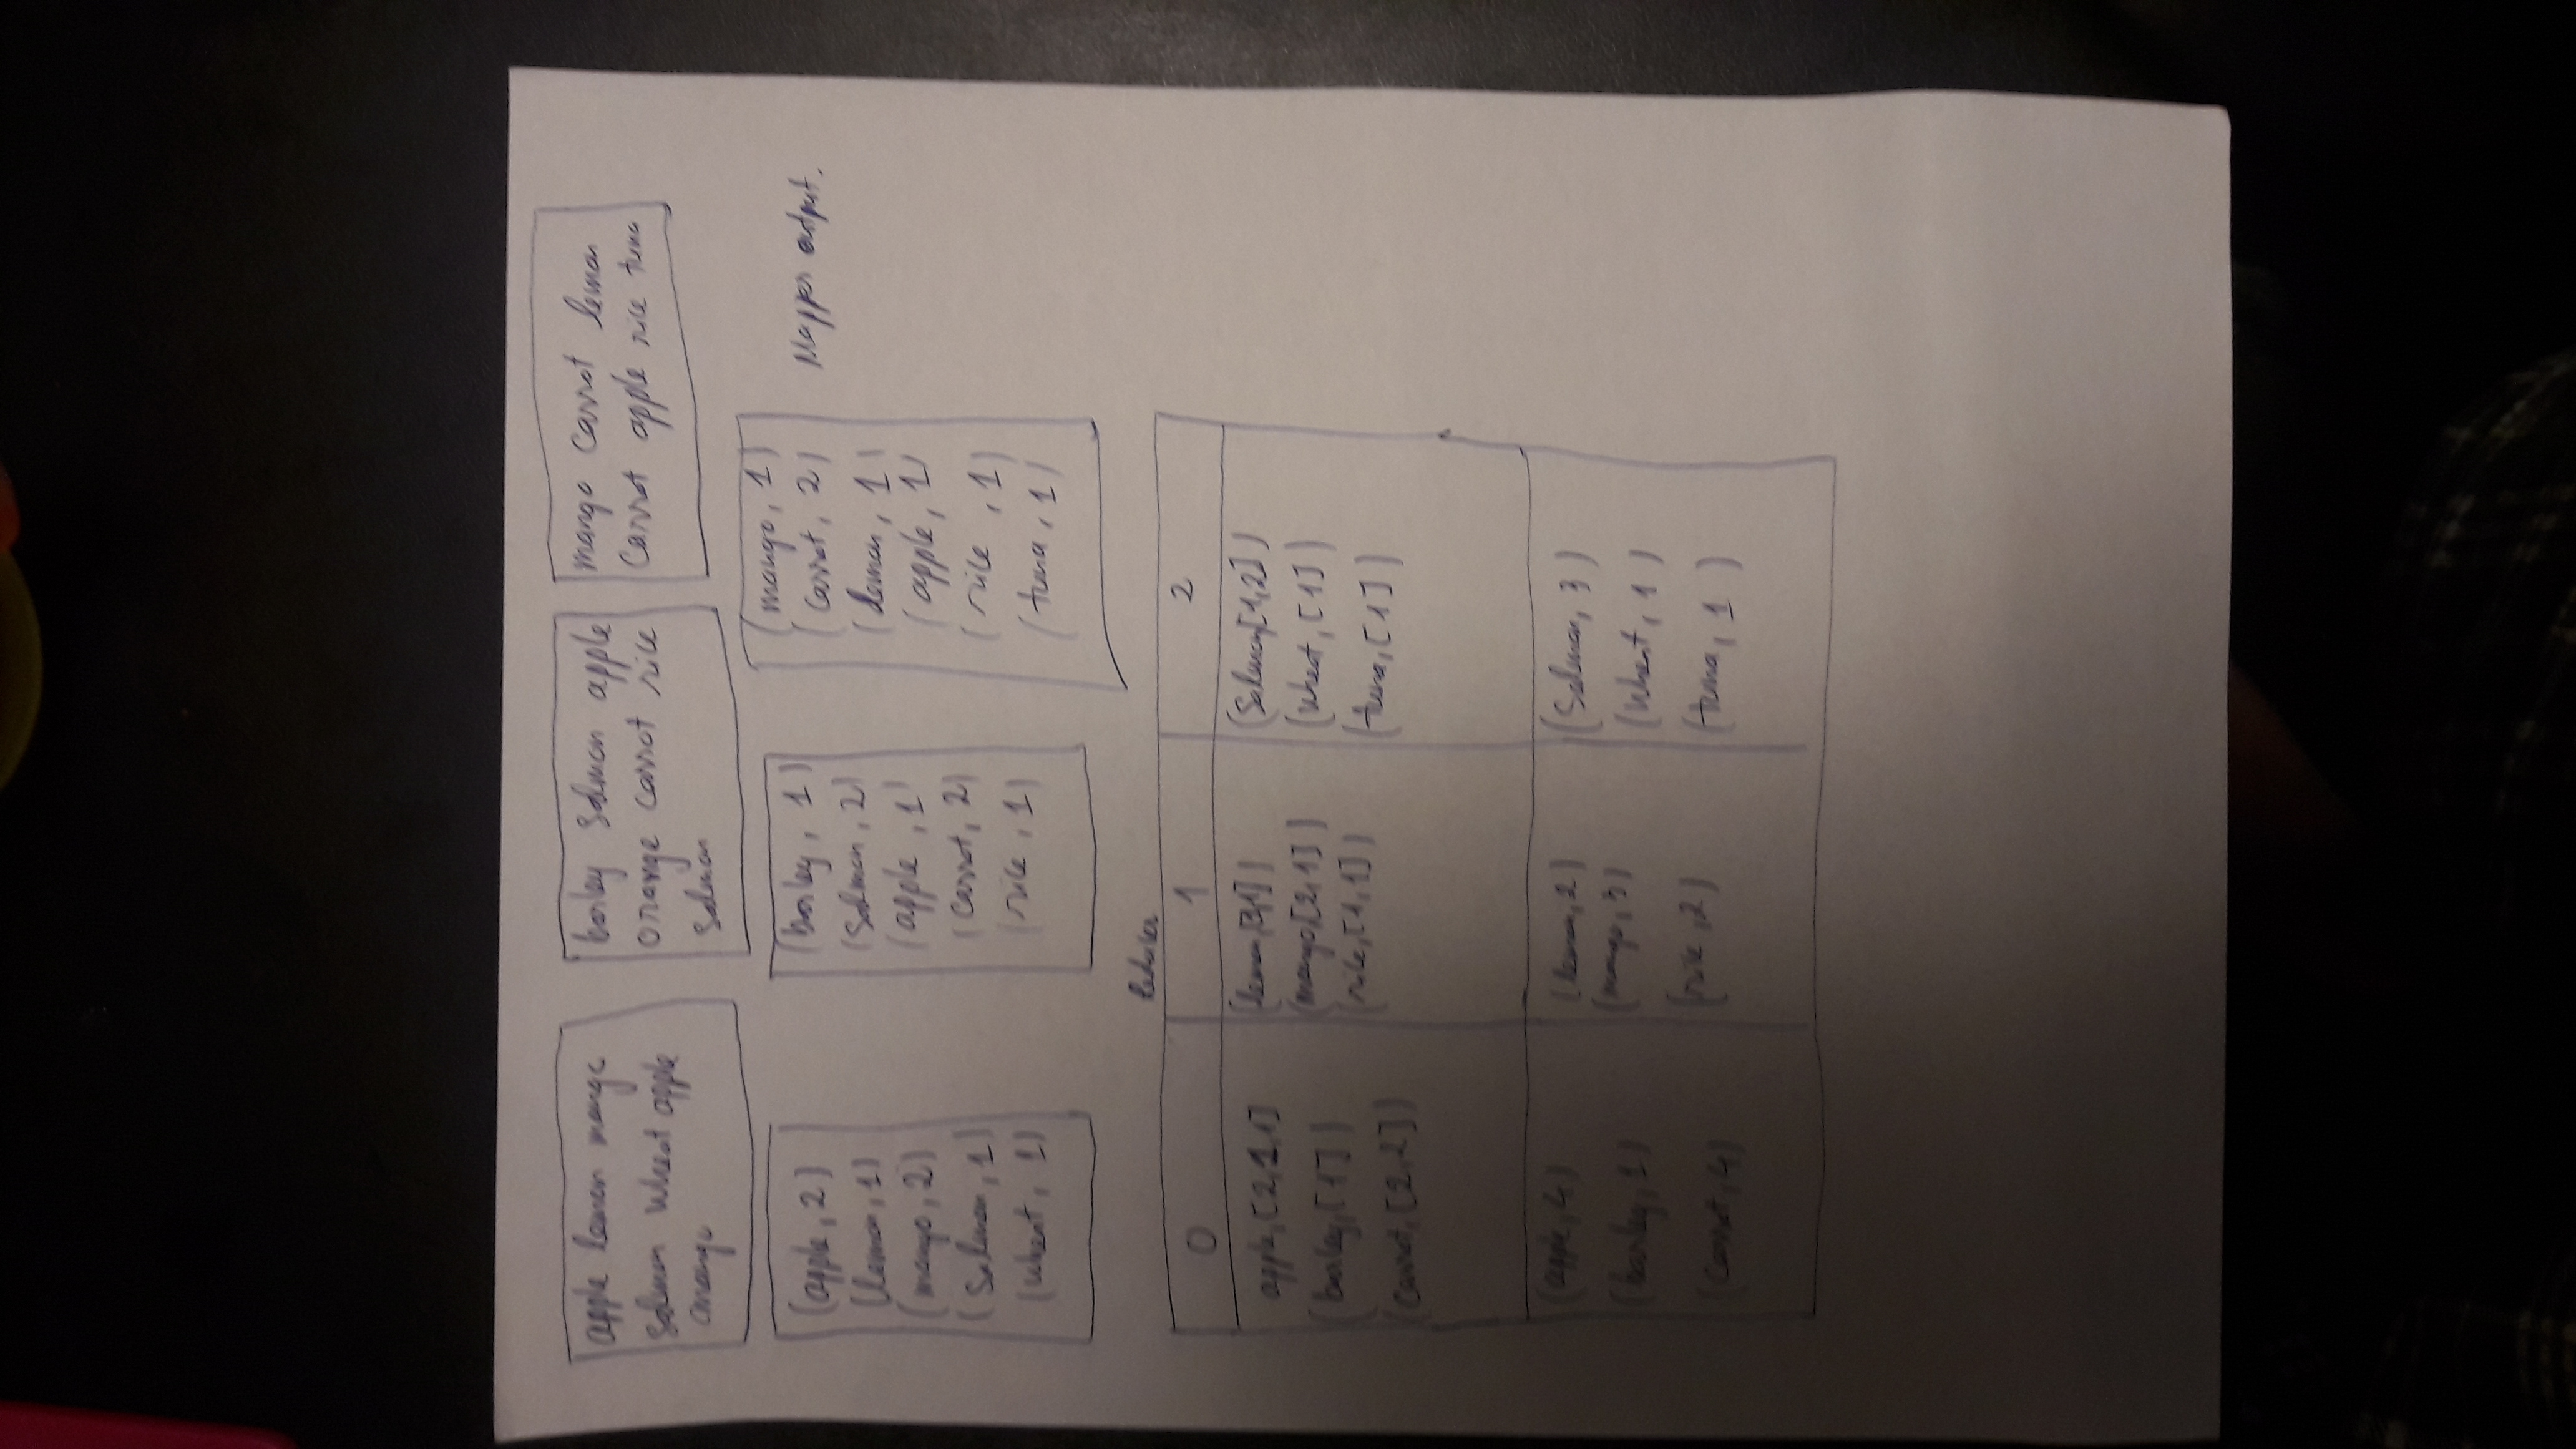 apple lemon mango
Salmon Wheat apple
mango
barley Salmon apple
orange carrot rice
Salmon
mango carrot lemon
Carrot apple rice tuna
(apple, 2)
(lemon, 1)
(mango, 2)
(Salmon, 1)
(wheat, 1)
(barley, 1)
(Salmon, 2)
(apple, 1)
(carrot, 2)
(rice, 1)
(mango, 1)
(carrot, 2)
(lemon, 1)
(apple, 1)
(rice, 1)
(tuna, 1)
Mapper output.
Reducer
0 1 2
apple, [2,1,1]
(barley, [1])
(carrot, [2,2])
(mango, [2,1])
(rice, [1,1])
(Salmon, [1,2])
(Wheat, [1])
(tuna, [1])
(apple, 4)
(barley, 1)
(carrot, 4)
(lemon, 2)
(mango, 3)
(rice, 2)
(Salmon, 3)
(Wheat, 1)
(tuna, 1)